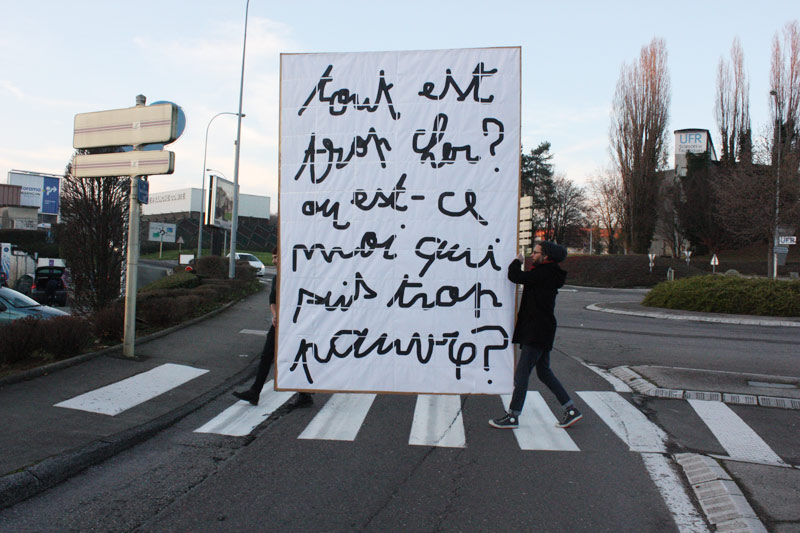 tout est
trop cher?
ou est-ce
moi qui
suis trop
pauvre?
UFR